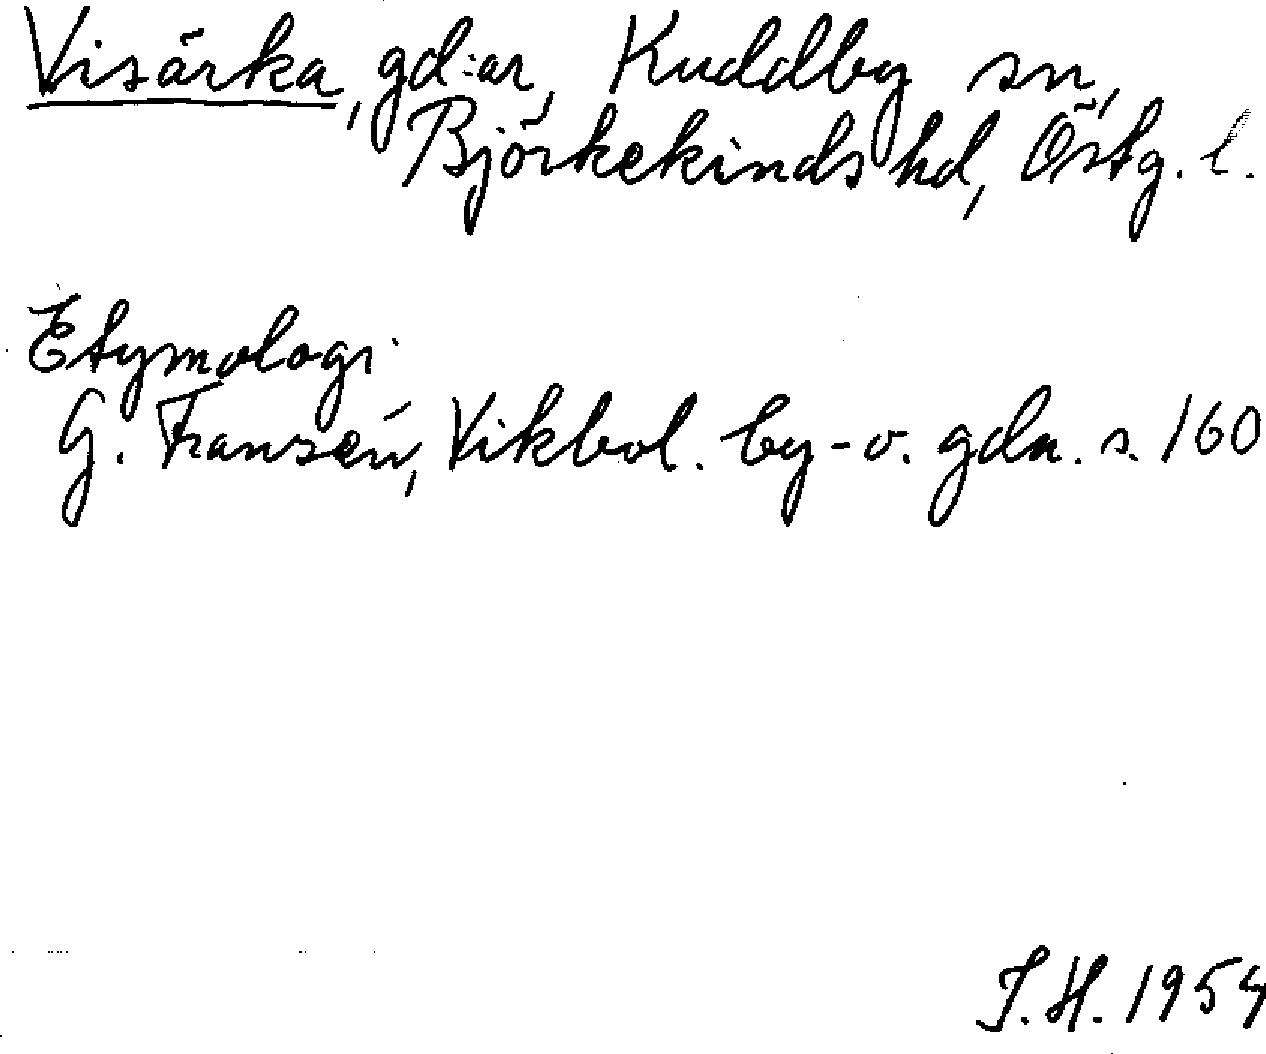 Visärka, gd:ar, Kuddby sn,
Björkekinds hd, Östg. l.
Etymologi
G. Franzén, Vikbol. by- o. gdn. s. 160
J. H. 1954